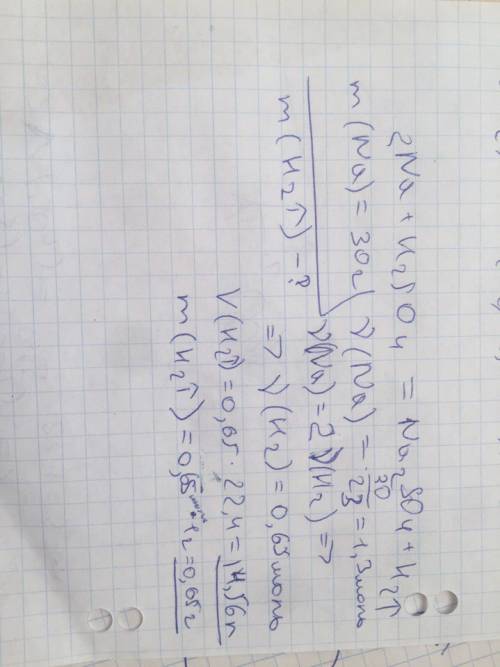 2Na + H2SO4 = Na2SO4 + H2↑
m(Na) = 30г
ν(Na) = 30/23 = 1,3 моль
m(H2↑) - ?
ν(Na) = 2ν(H2) =>
=> ν(H2) = 0,65 моль
V(H2↑) = 0,65 · 22,4 = 14,56л
m(H2↑) = 0,65 моль · 1г = 0,65г